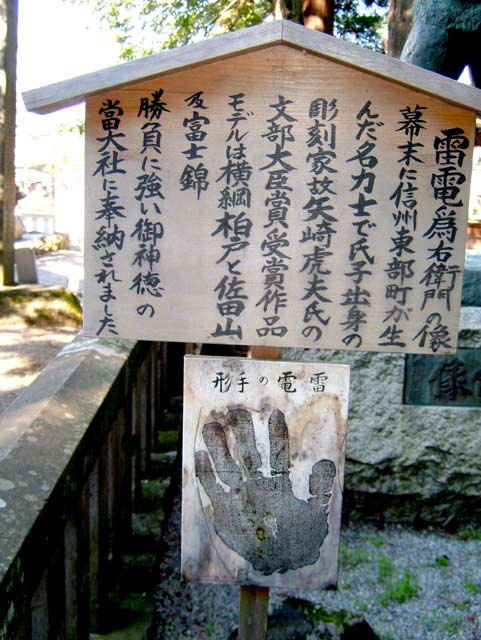 雷電為右衛門の像
幕末に信州東部町が生
んだ名力士で氏子出身の
彫刻家故矢崎虎夫氏の
文部大臣賞受賞作品
モデルは横綱柏戸と佐田山
及富士錦
勝負に強い御神徳の
當大社に奉納されました
雷電の手形
像